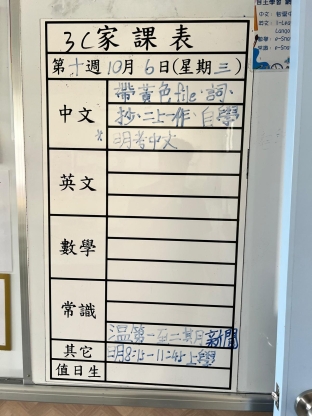 3C家課表
第十週10月6日(星期三)
中文
帶黃色file、詞、
抄、二上一作、自學
*明考中文
英文
數學
常識
溫第一至二課月新聞
其它
明8:15-11:45上學
值日生